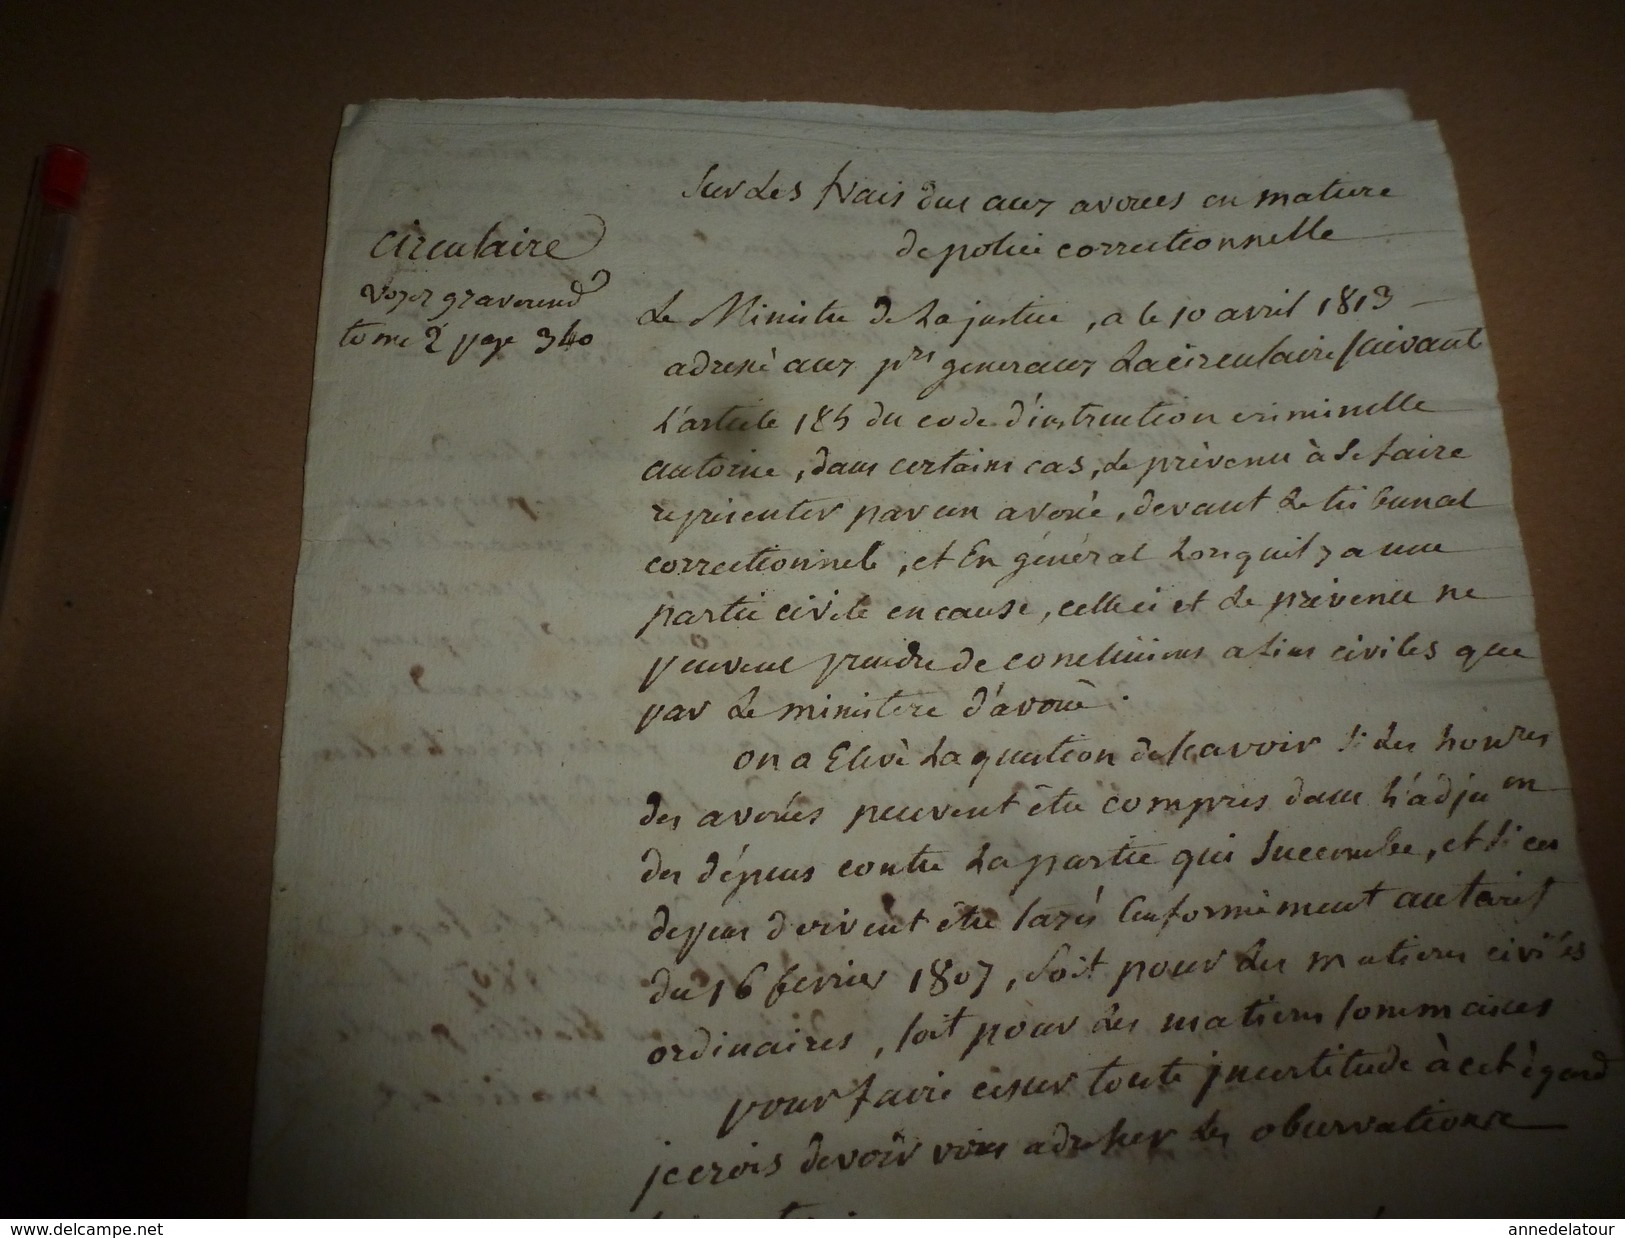 Sur Les frais dus aux avoués en matiere
de police correctionnelle
Circulaire
voyez graverend
tome 2 page 340
Le Ministre de La justice, a le 10 avril 1813
adressé aux prs generaux La circulaire suivant
L'article 185 du code d'instruction criminelle
autorise, dans certains cas, Le prévenu à Se faire
représenter par un avoué, devant Le tribunal
correctionnel, et En général Lorsquil y a une
partie civile en cause, celle ci et Le prévenu ne
peuvent prendre de conclusions a fins civiles que
par Le ministere d'avoué.
on a Elevé La question de Scavoir Si Les honres
des avoués peuvent être compris dans L'adjuon
des dépens contre La partie qui Succombe, et Si ces
depens doivent être taxés Conformément au tarif
du 16 fevrier 1807, Soit pour Les matieres civiles
ordinaires, Soit pour Les matieres Sommaires
pour faire cesser toute incertitude à cet égard
je crois devoir vous adresser Les observations
www.delcampe.net
annedelatour